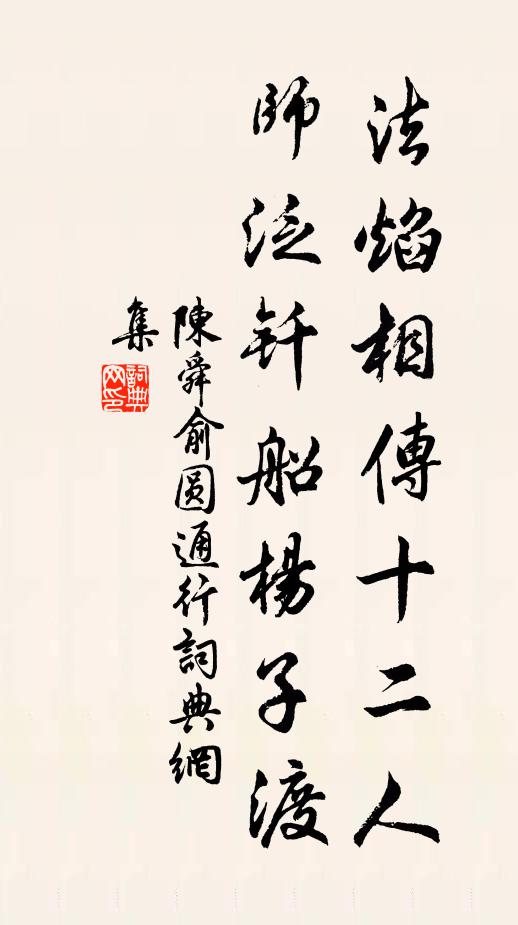 法焰相傳十二人
師泛釬船楊子渡
陳舜俞圆通行詞典網
集
詞典
网印